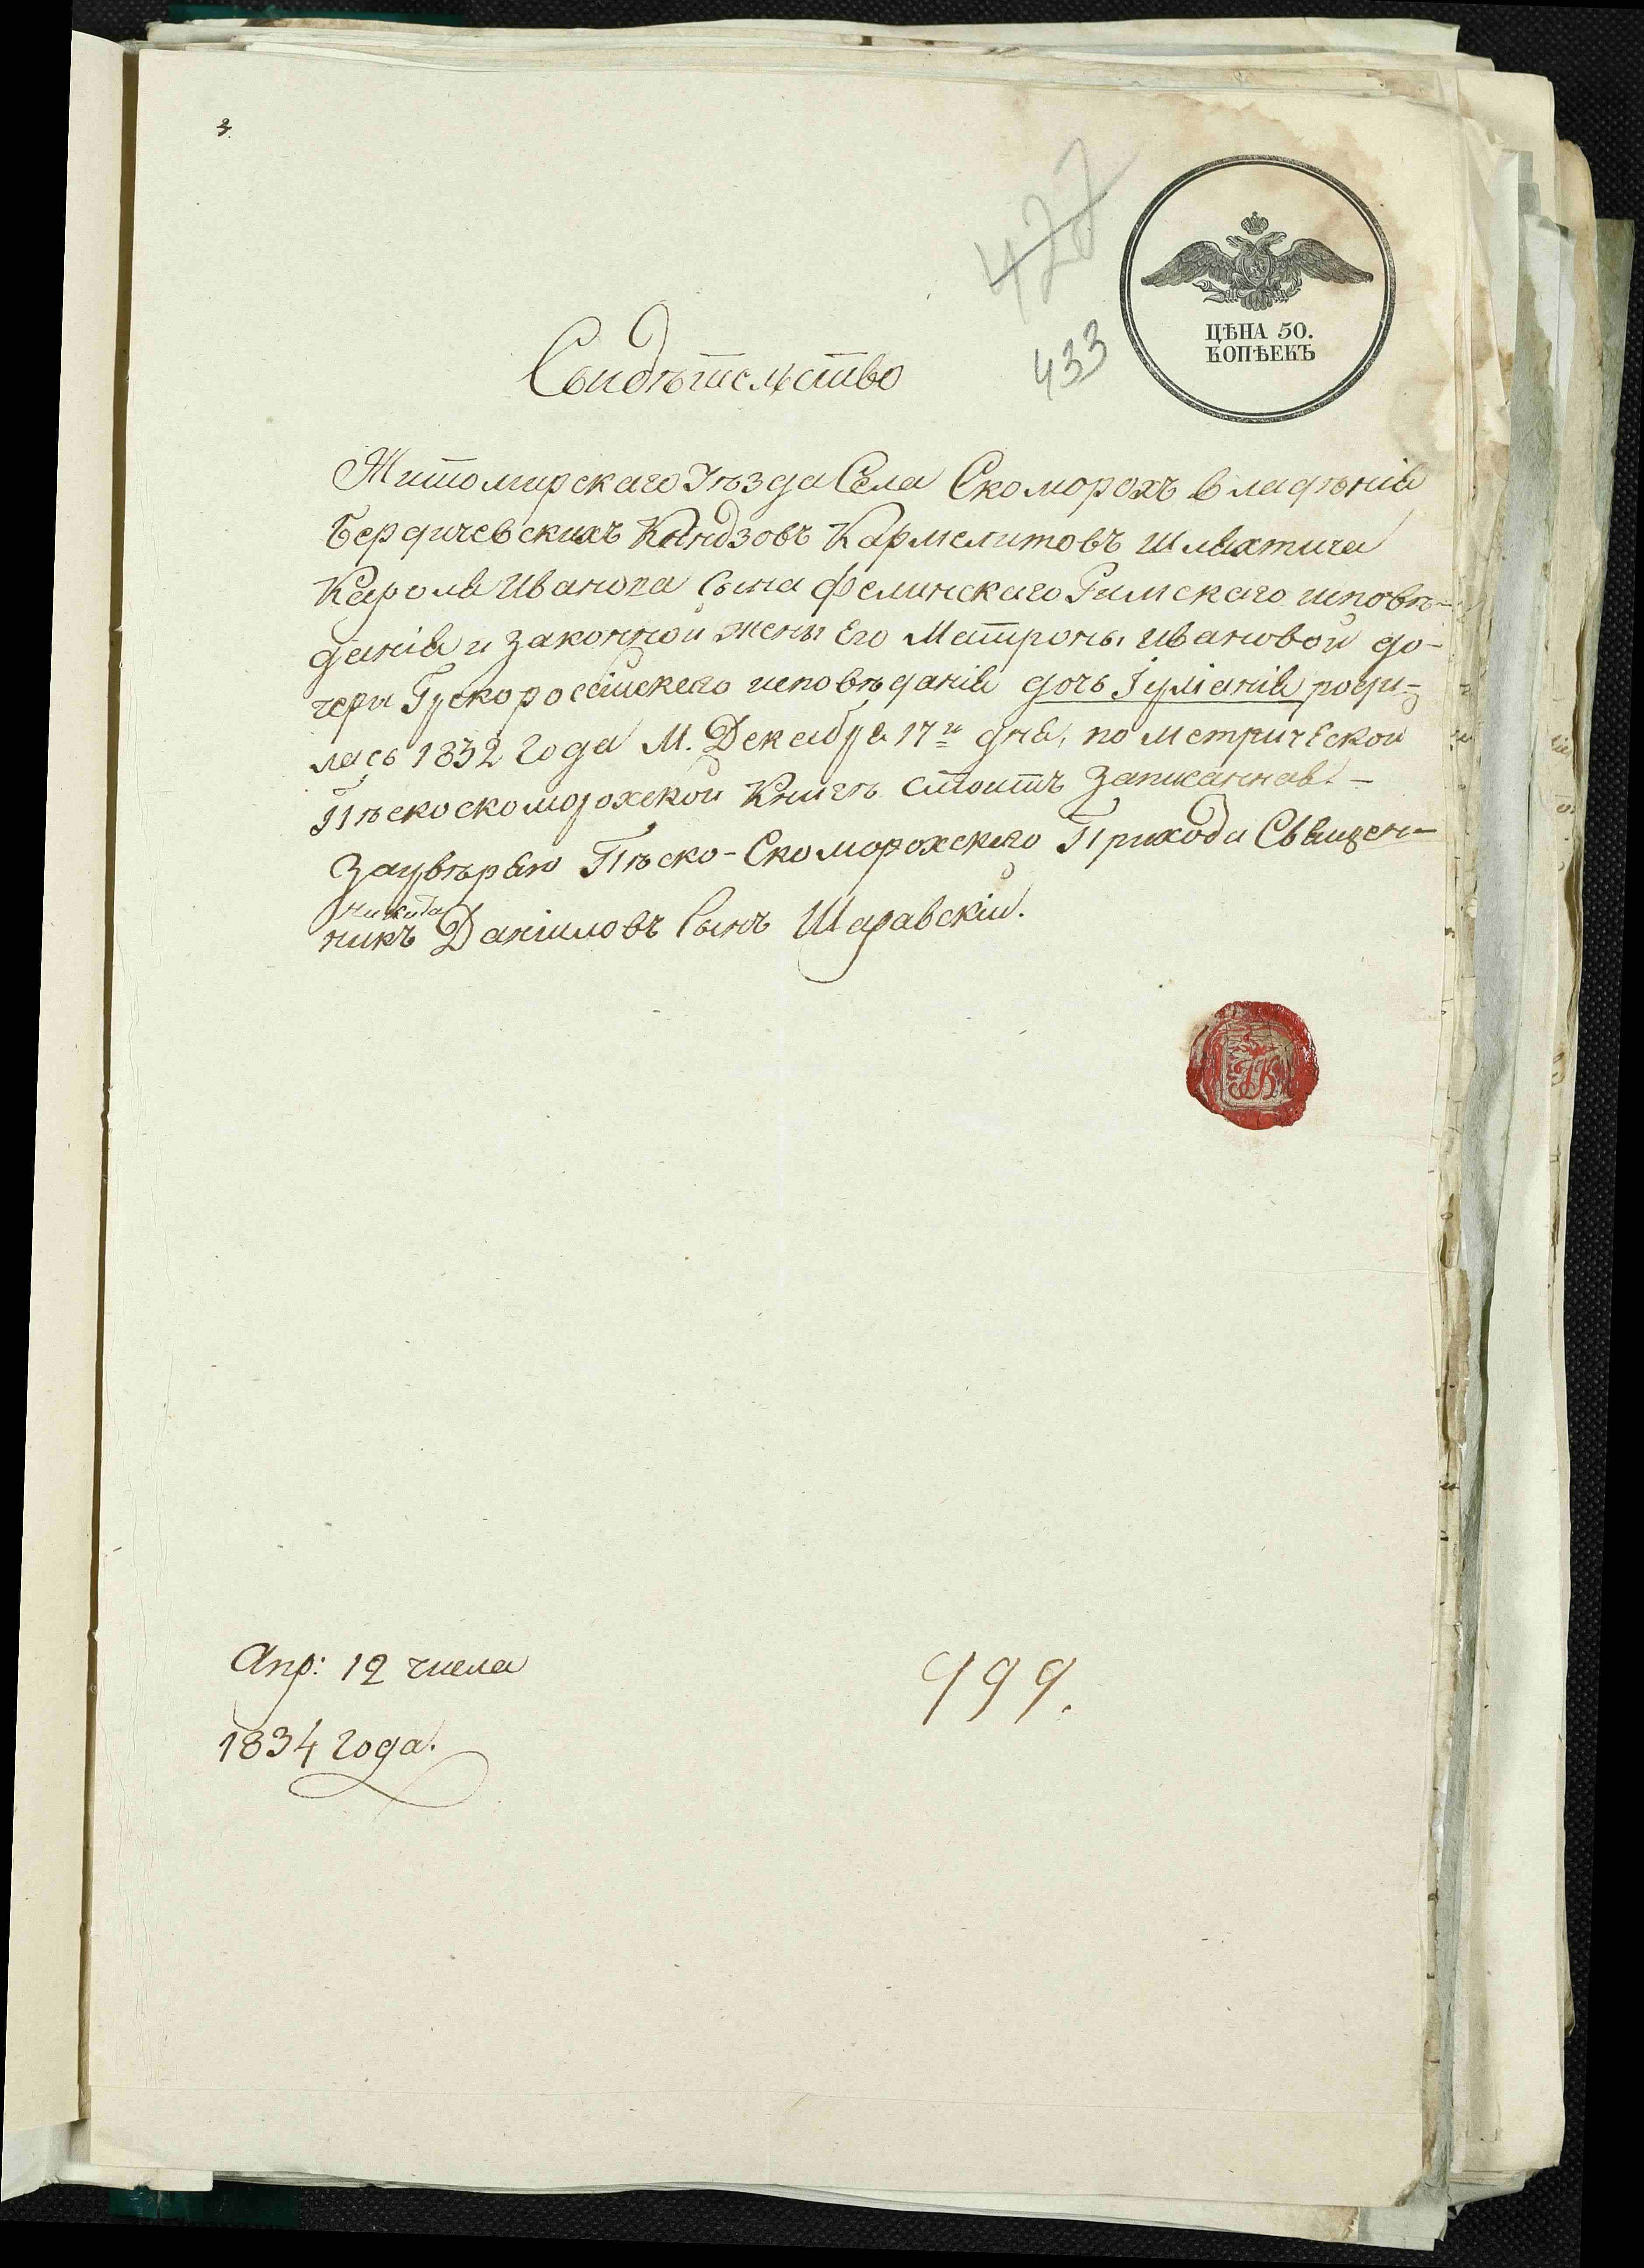 3.
427
433
ЦѢНА 50.
КОПѢЕКЪ
Свидѣтельство
Житомирскаго Уѣзда Села Скоморохъ владѣнія
Бердичевскихъ Ксіондзовъ Кармелитовъ шляхтича
Кароля Иванова сына Фелинскаго Римскаго исповѣ-
данія и законной жены Его Матроны Ивановой до-
чери Грекороссійскаго исповѣданія дочь Іуліанія роди-
лась 1832 года М. Декабря 17го дня, по метрической
Пѣскоскоморохской Книгѣ стоитъ записанная. –
Заувѣряю Пѣско-Скоморохскаго Прихода Священ-
никъ Никита Даніиловъ Сынъ Шаравскій.
Апр: 12 числа
1834 года.
999.